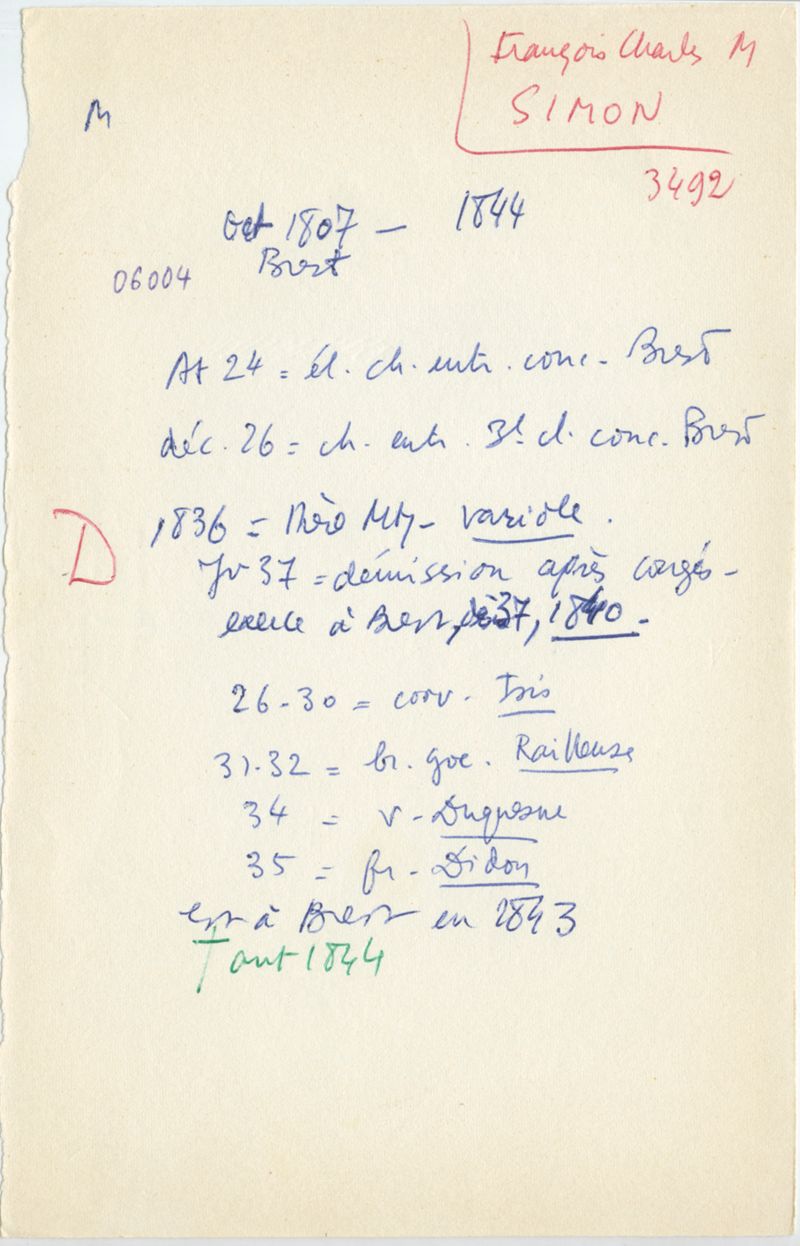 François Charles M
SIMON
3492
M
oct 1807 – 1844
Brest
06004
At 24 = él. ch. entr. conc. Brest
déc. 26 = ch. entr. 3e cl. conc. Brest
D
1836 = Thèse Mtp – variole.
Jv 37 = démission après congés –
exerce à Brest, 37, 1840.
26-30 = corv. Isis
31-32 = br. goe. Railleuse
34 = v. Duquesne
35 = fr. Didon
est à Brest en 1843
† aout 1844